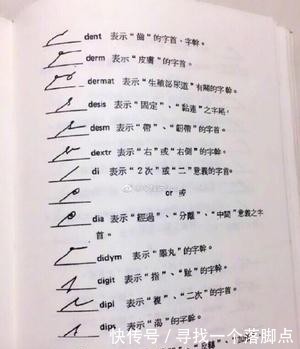 dent 表示“齒”的字首、字幹。
derm 表示“皮膚”的字幹。
dermat 表示“生殖泌尿道”有關的字幹。
desis 表示“固定”、“黏連”之字尾。
desm 表示“帶”、“韌帶”的字首。
dextr 表示“右”或“右側”的字幹。
di 表示“2次”或“二”意義的字首。
or 或
dia 表示“經過”、“分離”、“中間”意義之字
首。
didym 表示“睪丸”的字幹。
digit 表示“指”、“趾”的字幹。
dipl 表示“複”、“二次”的字首。
表示“渴”的字幹。
快传号 / 寻找一个落脚点